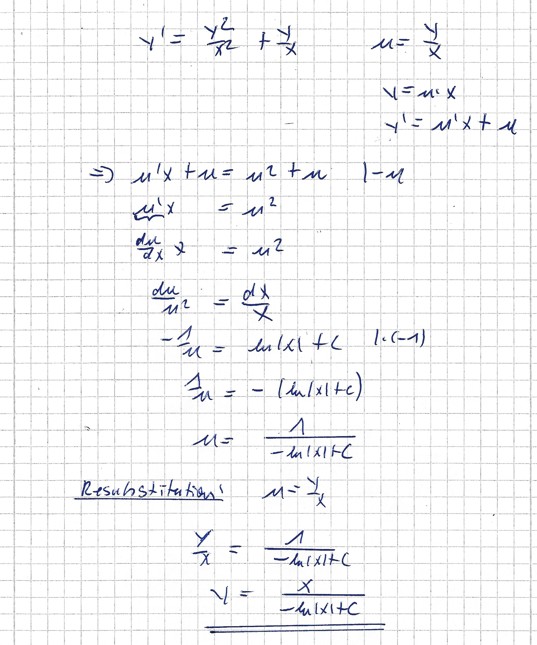 y' = y²/x² + y/x    u = y/x
y = u·x
y' = u'x + u
=> u'x + u = u² + u   |-u
u'x = u²
du/dx x = u²
du/u² = dx/x
-1/u = ln|x| + C   |·(-1)
1/u = -(ln|x|+C)
u = 1/(-ln|x|+C)
Resubstitution: u = y/x
y/x = 1/(-ln|x|+C)
y = x/(-ln|x|+C)